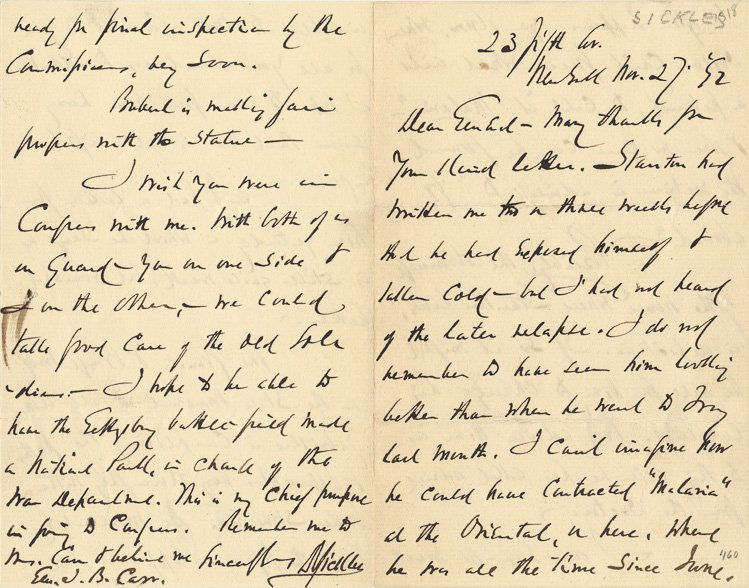 SICKLES
23 fifth Av.
New York Nov. 27. '92
Dear General – Many thanks for
your kind letter. Stanton had
written me two or three weeks before
that he had exposed himself &
taken cold – but I had not heard
of the later relapse. I do not
remember to have seen him looking
better than when he went to Troy
last month. I can't imagine how
he could have contracted "Malaria"
at the Oriental, or here, where
he was all the time since June.
ready for final inspection by the
Commissioners, very soon.
is making fair
progress with the Statue –
I wish you were in
Congress with me. With both of us
on Guard – you on one side &
I on the other, – we could
take good care of the old Sol-
-diers. – I hope to be able to
have the Gettysburg battle-field made
a National Park, in charge of the
War Department. This is my chief purpose
in going to Congress. Remember me to
Mrs. Carr & believe me sincerely DSickles
Gen. J. B. Carr.